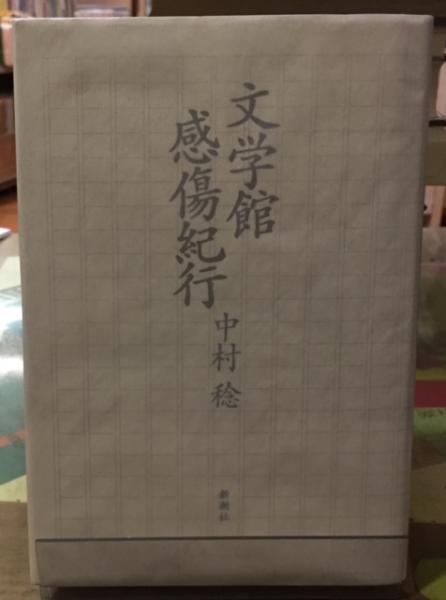 文学館
感傷紀行
中村 稔
新潮社